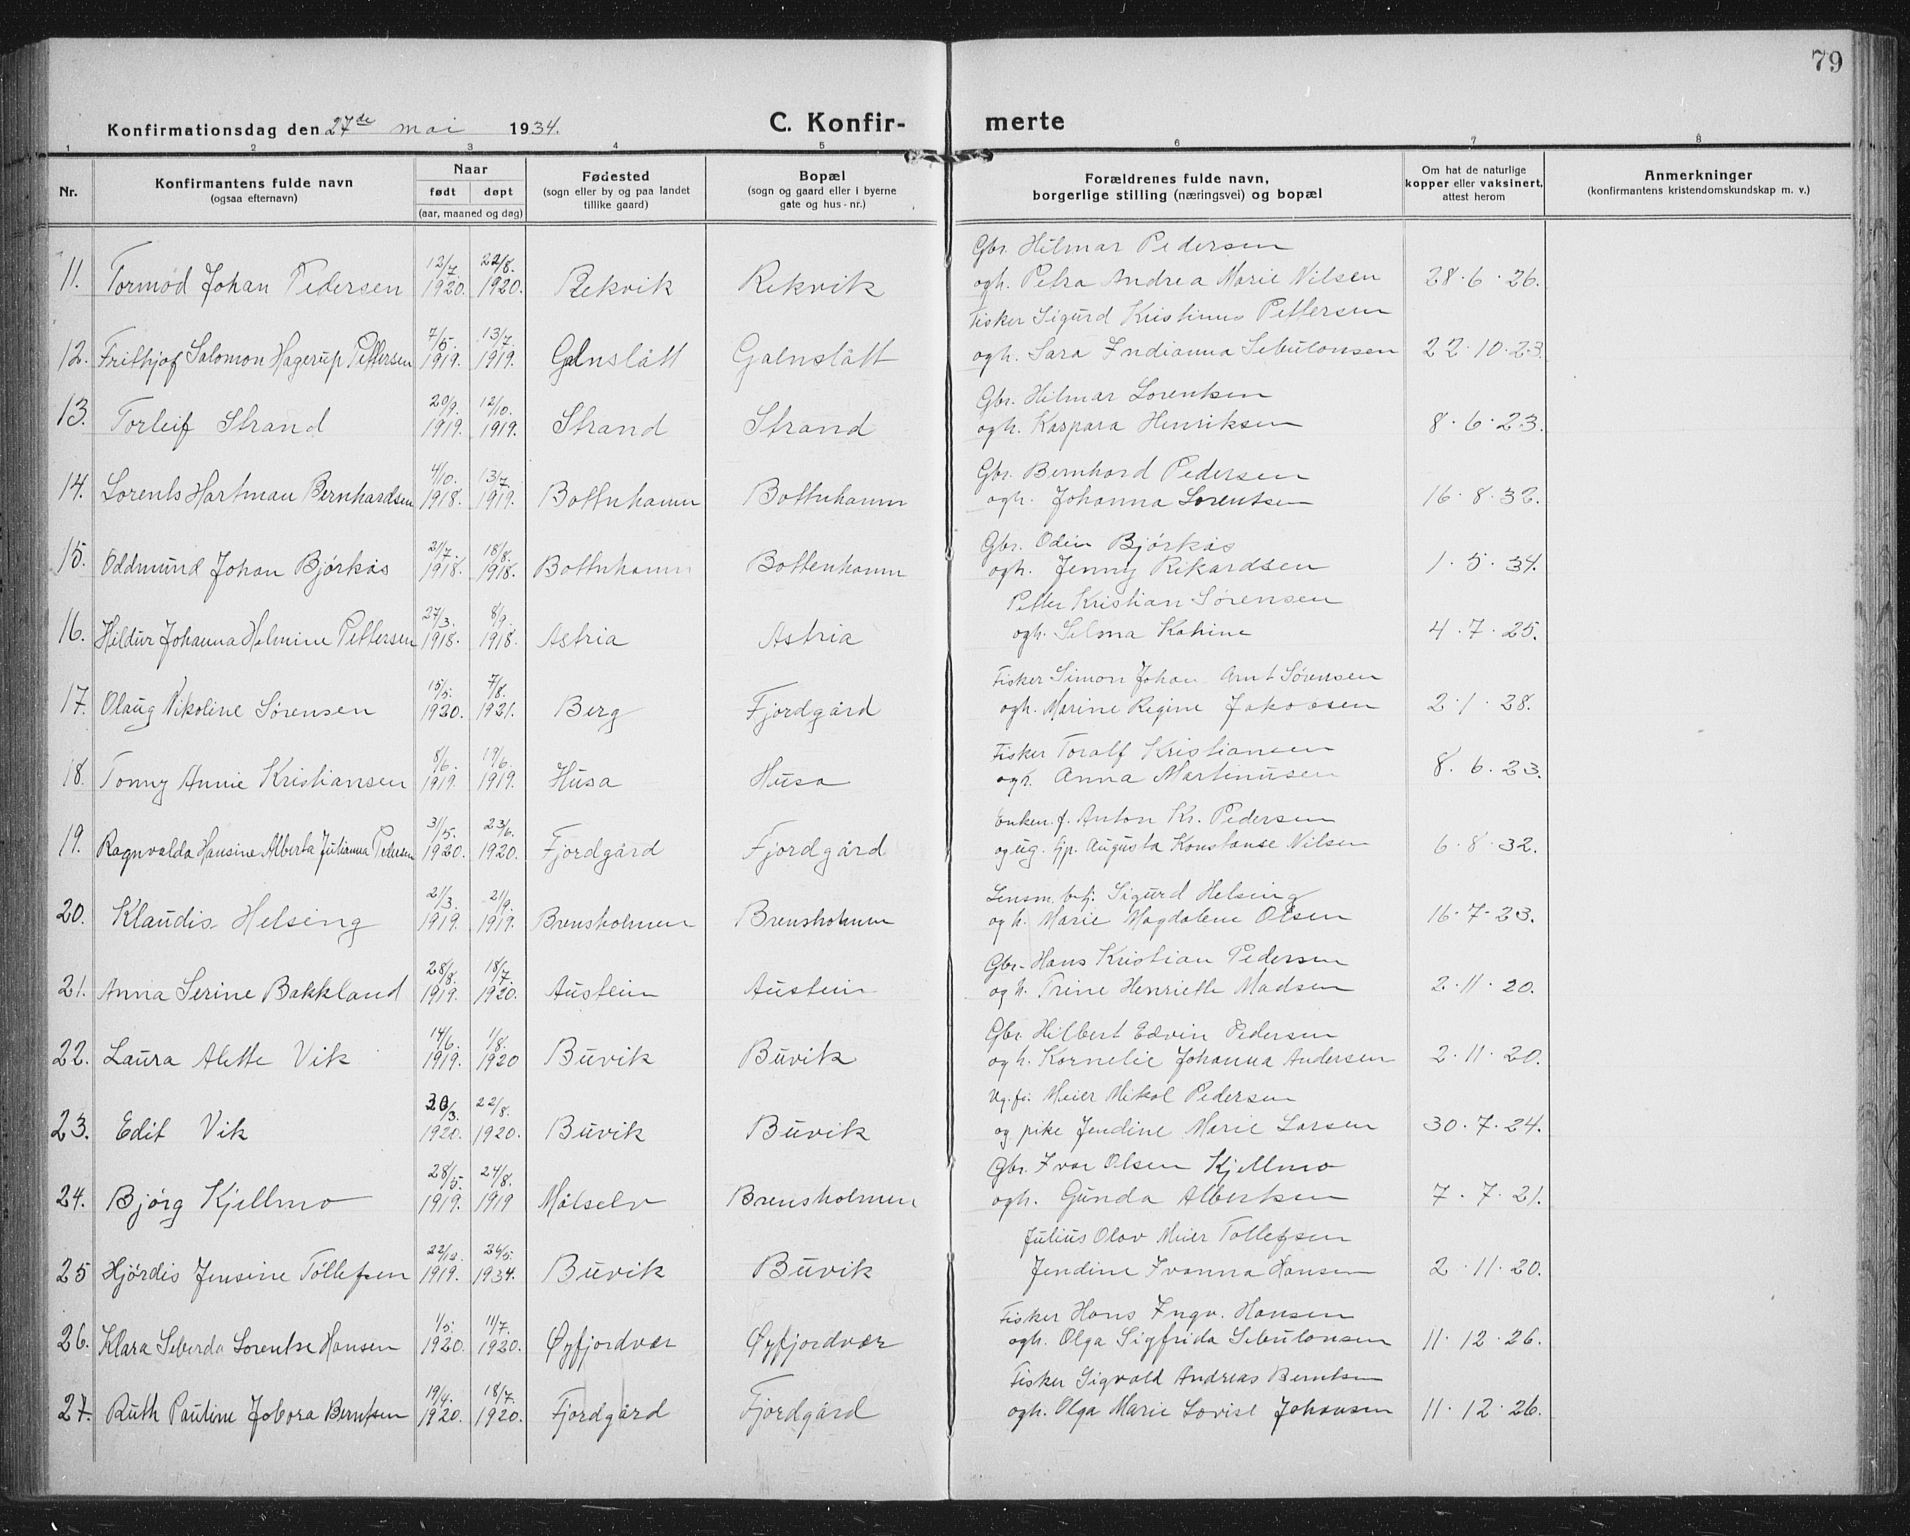 79
Konfirmationsdag den 27de mai 1934.
C. Konfir- merte
1 2 3 4 5 6 7 8
Nr.
Konfirmantens fulde navn
(ogsaa efternavn)
Naar
født døpt
(aar, maaned og dag)
Fødested
(sogn eller by og paa landet
tillike gaard)
Bopæl
(sogn og gaard eller i byerne
gate og hus-nr.)
Forældrenes fulde navn,
borgerlige stilling (næringsvei) og bopæl
Om hat de naturlige
kopper eller vaksinert,
attest herom
Anmerkninger
(konfirmantens kristendomskundskap m. v.)
12/7. 22/8. Gbr. Hilmar Pedersen
11. Tormød Johan Pedersen 1920. 1920. Rekvik Rekvik ogh. Petra Andrea Marie Nilsen 28.6.26.
7/5. 13/7. Fisker Sigurd Kristinus Pettersen
12. Frithjof Salomon Hagerup Pettersen 1919. 1919. Galnslått Galnslått ogh. Sara Indianna Sebulonsen 22.10.23.
20/9. 12/10. Gbr. Hilmar Lorentsen
13. Torleif Strand 1919. 1919. Strand Strand ogh. Kaspara Henriksen 8.6.23.
4/10. 13/7. Gbr. Bernhard Pedersen
14. Lorents Hartman Bernhardsen 1918. 1919. Bottnhamn Bottnhamn ogh. Johanna Lorentsen 16.8.32.
21/7. 18/8. Gbr. Odin Bjørkås
15. Oddmund Johan Bjørkås 1918. 1918. Bottnhamn Bottenhamn ogh. Jenny Rikardsen 1.5.34.
27/3. 8/9. Petter Kristian Sørensen
16. Hildur Johanna Helmine Pettersen 1918. 1918. Astria Astria ogh. Selma Katrine 4.7.25.
15/5. 7/8. Fisker Simon Johan Arnt Sørensen
17. Olaug Nikoline Sørensen 1920. 1921. Berg Fjordgård ogh. Marine Regine Jakobsen 2.1.28.
8/6. 19/6. Fisker Toralf Kristiansen
18. Tonny Annie Kristiansen 1919. 1919. Husa Husa ogh. Anna Martinusen 8.6.23.
31/5. 23/6. Enkem. f. Anton Kr. Pedersen
19. Ragnvalda Hansine Alberta Julianna Pedersen 1920. 1920. Fjordgård Fjordgård og ug. Gp. Augusta Konstanse Nilsen 6.8.32.
21/3. 21/9. Lensm. btj. Sigurd Helsing
20. Klaudis Helsing 1919. 1919. Brensholmen Brensholmen og h. Marie Magdalene Olsen 16.7.23.
28/8. 18/7. Gbr. Hans Kristian Pedersen
21. Anna Serine Bakkland 1919. 1920. Austein Austein og h. Trine Henriette Madsen 2.11.20.
14/6. 1/8. Gbr. Hilbert Edvin Pedersen
22. Laura Alette Vik 1919. 1920 Buvik Buvik og h. Kornelie Johanna Andersen 2.11.20.
20/3. 22/8. Ug. fi. Meier Mikal Pedersen
23. Edit Vik 1920. 1920. Buvik Buvik og pike Jendine Marie Larsen 30.7.24.
28/5. 24/8. Gbr. Ivar Olsen Kjellmo
24. Bjørg Kjellmo 1919. 1919 Målselv Brensholmen ogh. Gunda Albertsen 7.7.21.
22/12. 26/5. Julius Olav Meier Tollefsen
25 Hjørdis Jensine Tøllefsen 1919. 1934. Buvik Buvik Jendine Ivanna Hansen 2.11.20.
1/5. 11/7. Fisker Hans Ingv. Hansen
26. Klara Seberda Lorentse Hansen 1920. 1920. Øyfjordvær Øyfjordvær ogh. Olga Sigfrida Sebulonsen 11.12.26.
19/4. 18/7. Fisker Sigvald Andreas Berntsen
27. Ruth Pauline Jobora Berntsen 1920. 1920. Fjordgård Fjordgård ogh. Olga Marie Lovise Johansen 11.12.26.